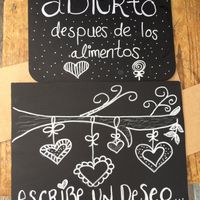 abierto
despues de los
alimentos
escribe un Deseo...